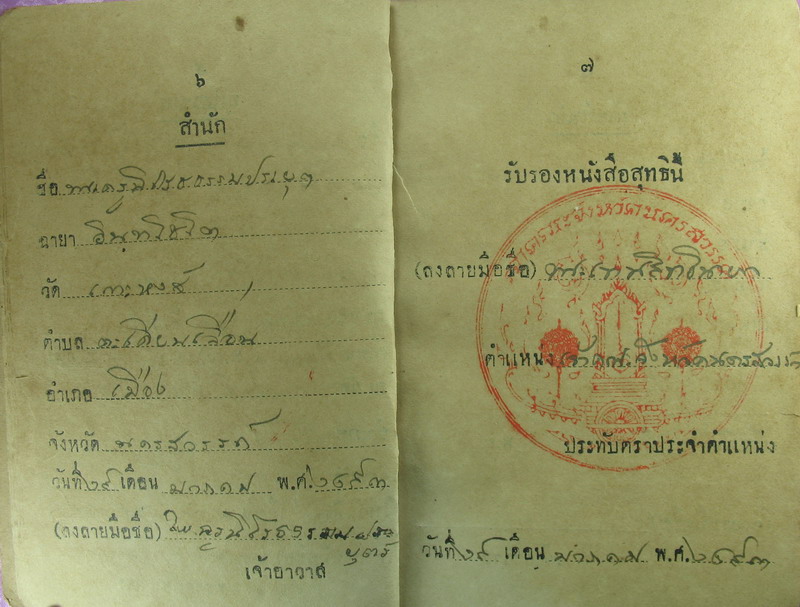 ๖
สำนัก
ชื่อ พระครูนิโรธธรรมประยุต
ฉายา อินฺทโชโต
วัด เกาะหงส์
ตำบล ตะเคียนเลื่อน
อำเภอ เมือง
จังหวัด นครสวรรค์
วันที่ ๒๙ เดือน มกราคม พ.ศ. ๒๔๙๓
(ลงลายมือชื่อ) พระครูนิโรธธรรมประ
ยุตร์
เจ้าอาวาส
๗
รับรองหนังสือสุทธินี้
(ลงลายมือชื่อ) พระเทพสิทธินายก
ตำแหน่ง จังหวัดนครสวรรค์
ประทับตราประจำตำแหน่ง
วันที่ ๒๙ เดือน มกราคม พ.ศ. ๒๔๙๓